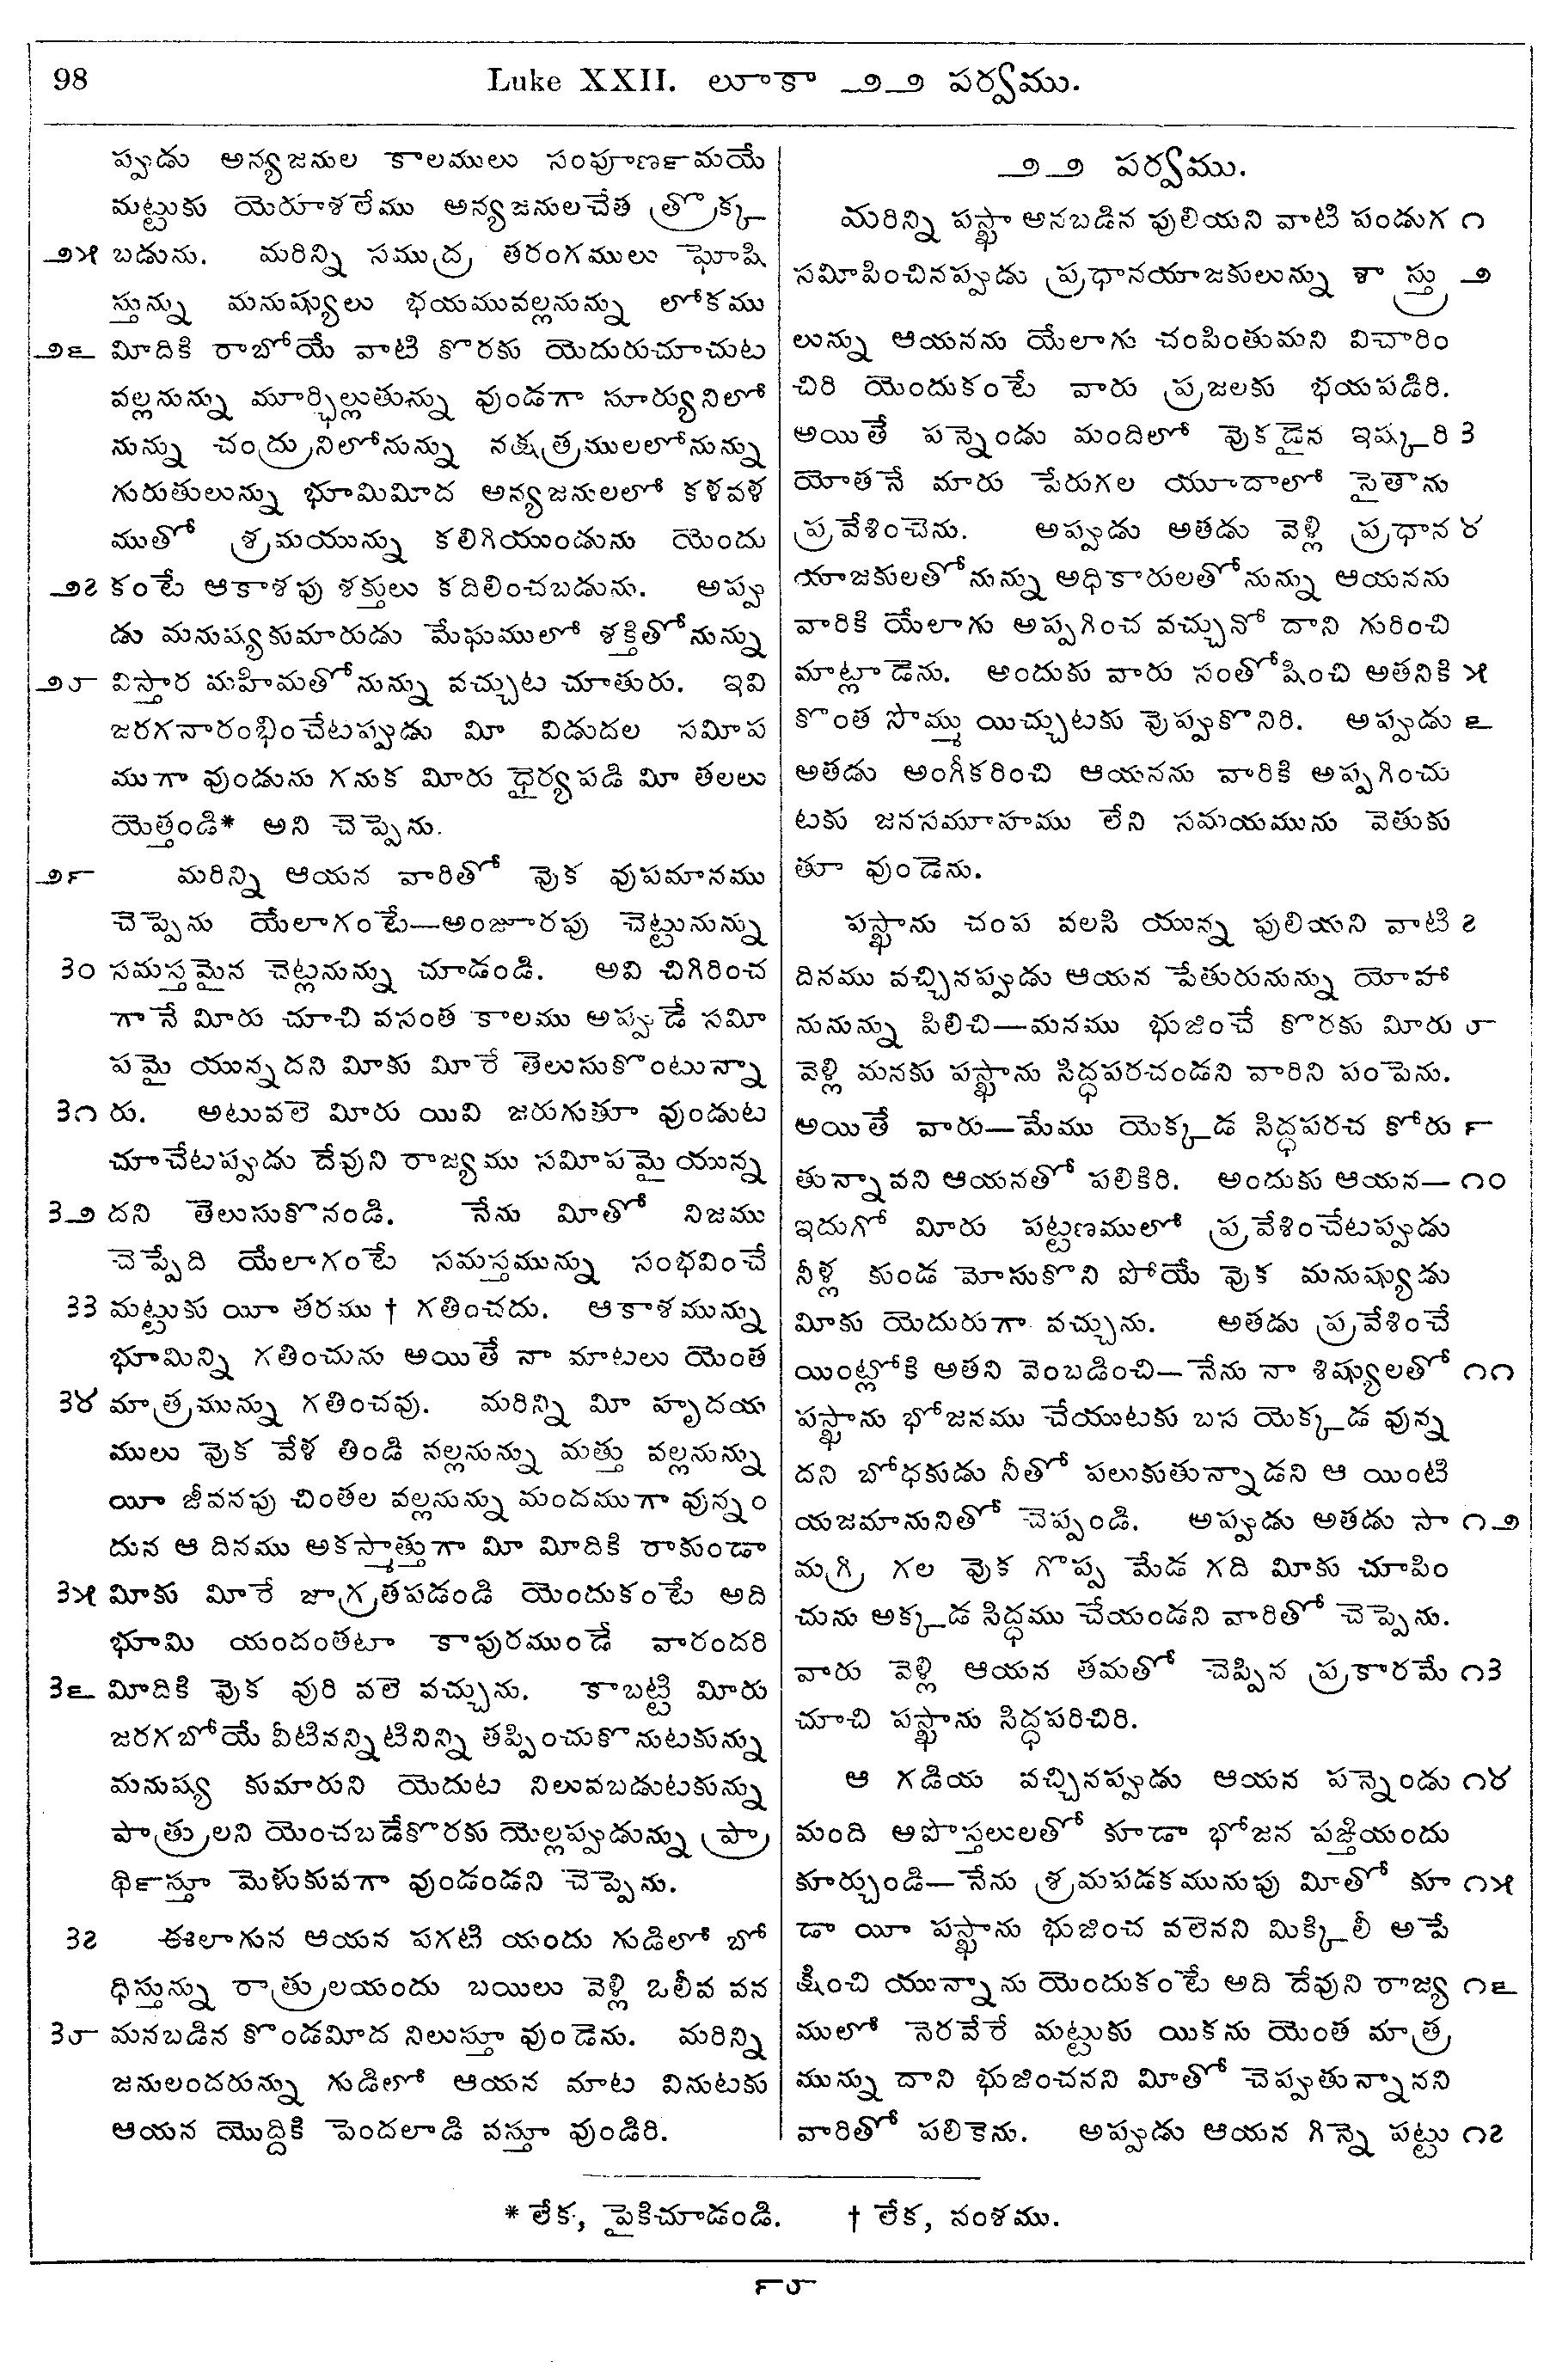 98
Luke XXII. లూకా ౨౨ పర్వము.
ప్పుడు అన్యజనుల కాలములు సంపూణ౯మయే
మట్టుకు యెరూశలేము అన్యజనులచేత త్రొక్క
౨౫ బడును. మరిన్ని సముద్ర తరంగములు ఘోషి
స్తున్ను మనుష్యులు భయమువల్లనున్ను లోకము
౨౬ మీదికి రాబోయే వాటి కొరకు యెదురుచూచుట
వల్లనున్ను మూర్ఛిల్లుతున్ను వుండగా సూర్యునిలో
నున్ను చంద్రునిలోనున్ను నక్షత్రములలోనున్ను
గురుతులున్ను భూమిమీద అన్యజనులలో కళవళ
ముతో శ్రమయున్ను కలిగియుండును యెందు
౨౭ కంటే ఆకాశపు శక్తులు కదిలించబడును. అప్పు
డు మనుష్యకుమారుడు మేఘములో శక్తితోనున్ను
౨౮ విస్తార మహిమతోనున్ను వచ్చుట చూతురు. ఇవి
జరగనారంభించేటప్పుడు మీ విడుదల సమీప
ముగా వుండును గనుక మీరు ధైర్యపడి మీ తలలు
యెత్తండి* అని చెప్పెను.
౨౯ మరిన్ని ఆయన వారితో వొక వుపమానము
చెప్పెను యేలాగంటే—అంజూరపు చెట్టునున్ను
౩౦ సమస్తమైన చెట్లనున్ను చూడండి. అవి చిగిరించ
గానే మీరు చూచి వసంత కాలము అప్పుడే సమీ
పమై యున్నదని మీకు మీరే తెలుసుకొంటున్నా
౩౧ రు. అటువలె మీరు యివి జరుగుతూ వుండుట
చూచేటప్పుడు దేవుని రాజ్యము సమీపమై యున్న
౩౨ దని తెలుసుకొనండి. నేను మీతో నిజము
చెప్పేది యేలాగంటే సమస్తమున్ను సంభవించే
౩౩ మట్టుకు యీ తరము † గతించదు. ఆకాశమున్ను
భూమిన్ని గతించును అయితే నా మాటలు యెంత
౩౪ మాత్రమున్ను గతించవు. మరిన్ని మీ హృదయ
ములు వొక వేళ తిండి వల్లనున్ను మత్తు వల్లనున్ను
యీ జీవనపు చింతల వల్లనున్ను మందముగా వున్నం
దున ఆ దినము అకస్మాత్తుగా మీ మీదికి రాకుండా
౩౫ మీకు మీరే జాగ్రతపడండి యెందుకంటే అది
భూమి యందంతటా కాపురముండే వారందరి
౩౬ మీదికి వొక వురి వలె వచ్చును. కాబట్టి మీరు
జరగబోయే వీటినన్నిటినిన్ని తప్పించుకొనుటకున్ను
మనుష్య కుమారుని యెదుట నిలువబడుటకున్ను
పాత్రులని యెంచబడేకొరకు యెల్లప్పుడున్ను ప్రా
థి౯స్తూ మెళుకువగా వుండండని చెప్పెను.
౩౭ ఈలాగున ఆయన పగటి యందు గుడిలో బో
ధిస్తున్ను రాత్రులయందు బయిలు వెళ్లి ఒలీవ వన
౩౮ మనబడిన కొండమీద నిలుస్తూ వుండెను. మరిన్ని
జనులందరున్ను గుడిలో ఆయన మాట వినుటకు
ఆయన యొద్దికి పెందలాడి వస్తూ వుండిరి.
౨౨ పర్వము.
మరిన్ని పస్ఖా అనబడిన పులియని వాటి పండుగ ౧
సమీపించినప్పుడు ప్రధానయాజకులున్ను శాస్త్రు ౨
లున్ను ఆయనను యేలాగు చంపింతుమని విచారిం
చిరి యెందుకంటే వారు ప్రజలకు భయపడిరి.
అయితే పన్నెండు మందిలో వొకడైన ఇష్కరి ౩
యోతనే మారు పేరుగల యూదాలో సైతాను
ప్రవేశించెను. అప్పుడు అతడు వెళ్లి ప్రధాన ౪
యాజకులతోనున్ను అధికారులతోనున్ను ఆయనను
వారికి యేలాగు అప్పగించ వచ్చునో దాని గురించి
మాట్లాడెను. అందుకు వారు సంతోషించి అతనికి ౫
కొంత సొమ్ము యిచ్చుటకు వొప్పుకొనిరి. అప్పుడు ౬
అతడు అంగీకరించి ఆయనను వారికి అప్పగించు
టకు జనసమూహము లేని సమయమును వెతుకు
తూ వుండెను.
పస్ఖాను చంప వలసి యున్న పులియని వాటి ౭
దినము వచ్చినప్పుడు ఆయన పేతురునున్ను యోహా
నునున్ను పిలిచి—మనము భుజించే కొరకు మీరు ౮
వెళ్లి మనకు పస్ఖాను సిద్ధపరచండని వారిని పంపెను.
అయితే వారు—మేము యెక్కడ సిద్ధపరచ కోరు ౯
తున్నావని ఆయనతో పలికిరి. అందుకు ఆయన— ౧౦
ఇదుగో మీరు పట్టణములో ప్రవేశించేటప్పుడు
నీళ్ల కుండ మోసుకొని పోయే వొక మనుష్యుడు
మీకు యెదురుగా వచ్చును. అతడు ప్రవేశించే
యింట్లోకి అతని వెంబడించి—నేను నా శిష్యులతో ౧౧
పస్ఖాను భోజనము చేయుటకు బస యెక్కడ వున్న
దని బోధకుడు నీతో పలుకుతున్నాడని ఆ యింటి
యజమానునితో చెప్పండి. అప్పుడు అతడు సా ౧౨
మగ్రి గల వొక గొప్ప మేడ గది మీకు చూపిం
చును అక్కడ సిద్ధము చేయండని వారితో చెప్పెను.
వారు వెళ్లి ఆయన తమతో చెప్పిన ప్రకారమే ౧౩
చూచి పస్ఖాను సిద్ధపరిచిరి.
ఆ గడియ వచ్చినప్పుడు ఆయన పన్నెండు ౧౪
మంది ఆపొస్తలులతో కూడా భోజన పఙ్తియందు
కూర్చుండి—నేను శ్రమపడకమునుపు మీతో కూ ౧౫
డా యీ పస్ఖాను భుజించ వలెనని మిక్కిలీ అపే
క్షించి యున్నాను యెందుకంటే అది దేవుని రాజ్య ౧౬
ములో నెరవేరే మట్టుకు యికను యెంత మాత్ర
మున్ను దాని భుజించనని మీతో చెప్పుతున్నానని
వారితో పలికెను. అప్పుడు ఆయన గిన్నె పట్టు ౧౭
* లేక, పైకిచూడండి. † లేక, వంశము.
౯౮